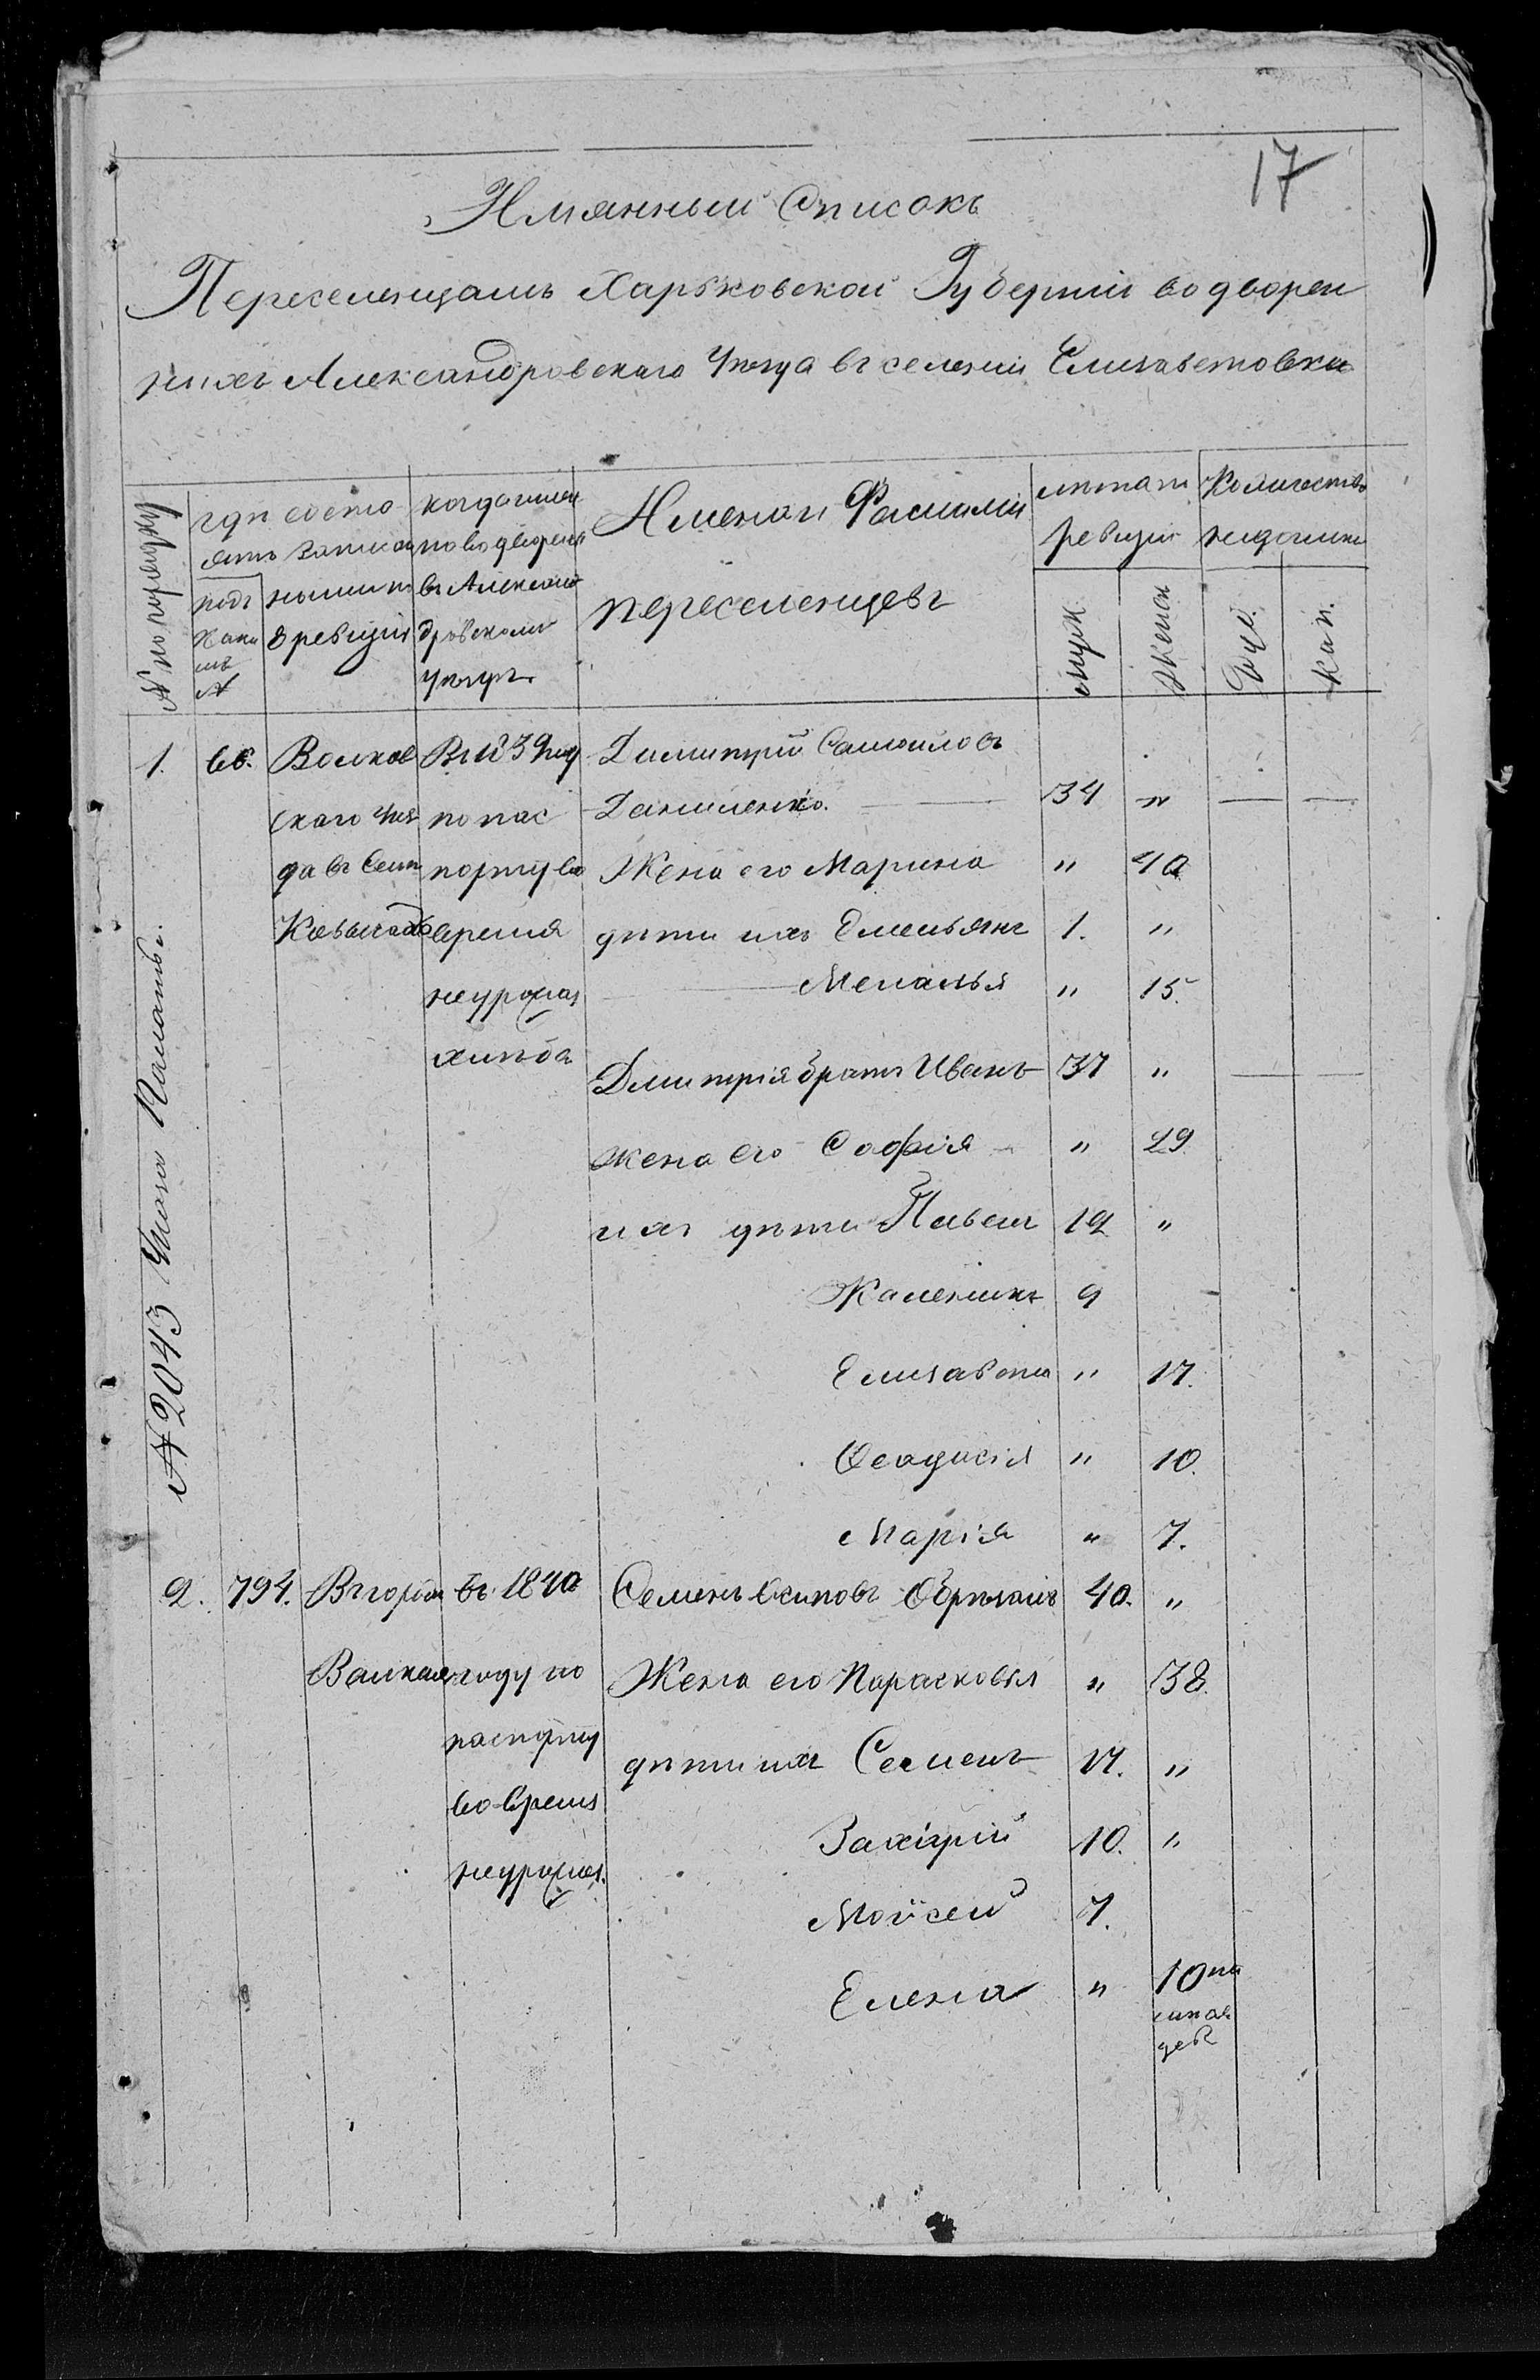 17
Имянный Списокъ
Переселенцамъ Харьковской Губерніи водворен
ныхъ Александровскаго Уезда въ селеніи Елизаветовки
№ по порядку
где состо
ятъ записан
подъ
каки
мъ
№
ными по
8 ревизіи
когда
по водворені
въ Алексан
дровскомъ
уезде
Имена и Фамиліи
переселенцевъ
лета по
ревизіи
Количество
недоимки
Муж.
Женск
Руб.
Коп.
№ 2043
Палаты.
1.
66.
Волков
скаго Уез
да въ Селе
Ковягахъ
В 1839 году
по пас
порту во
время
неурожая
хлеба
Димитрій Самойловъ
Даниленко. 34 " — —
Жена его Марина " 40
дети ихъ Емельянъ 1. "
Меланья " 15.
Дмитрія братъ Иванъ 37 "
жена его Софія " 29.
ихъ дети Павелъ 12 "
Калениκъ 9
Елизавета " 17.
Феодосія " 10.
Марія " 7.
2.
794.
В городе
Валкахъ
въ 1840
году по
паспорту
во время
неурожая.
Семенъ Осиповъ 40. "
Жена его Парасковья " 38.
дети ихъ Семенъ 17. "
Захарій 10. "
Мойсей 7.
Елена " 10